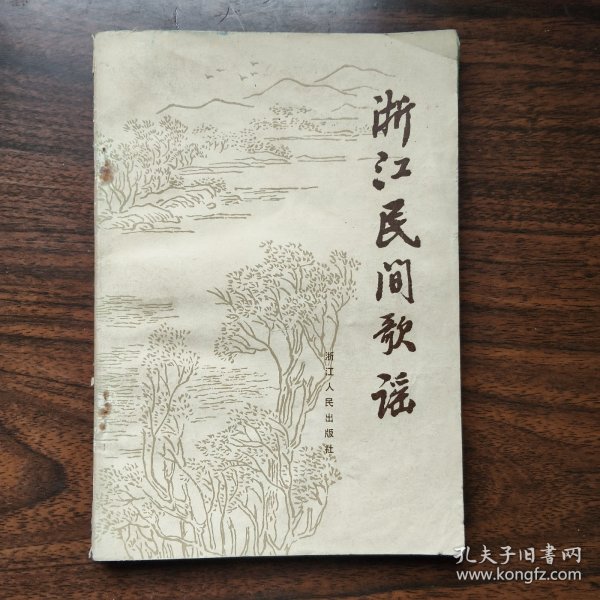 浙江民间歌谣
浙江人民出版社
孔夫子旧书网
www.kongfz.com